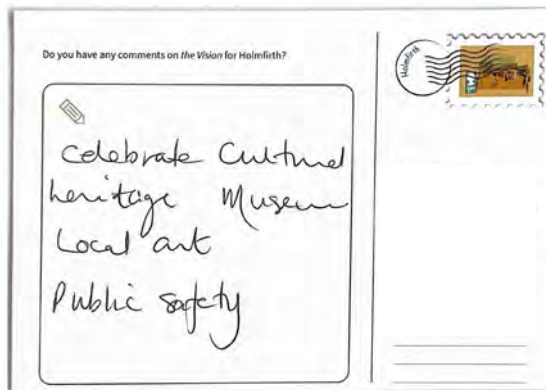 Do you have any comments on the Vision for Holmfirth?
Holmfirth
Celebrate Cultural
heritage Museum
Local art
Public safety